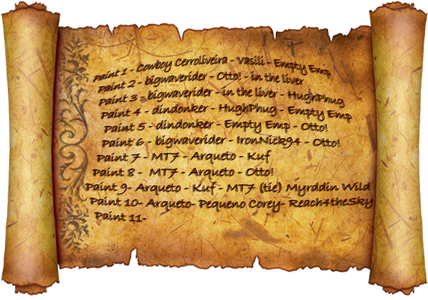 Paint 1 - Cowboy Cerroliveira - Vasili - Empty Emp
Paint 2 - bigwaverider - Otto! - in the liver
Paint 3 - bigwaverider - in the liver - HughPhug
Paint 4 - dindonker - HughPhug - Empty Emp
Paint 5 - dindonker - Empty Emp - Otto!
Paint 6 - bigwaverider - IronNick94 - Otto!
Paint 7 - MT7 - Arqueto - Kuf
Paint 8 - MT7 - Arqueto - Otto!
Paint 9- Arqueto - Kuf - MT7 (tie) Myrddin Wild
Paint 10- Arqueto- Pequeno Corey- Reach4theSky
Paint 11-